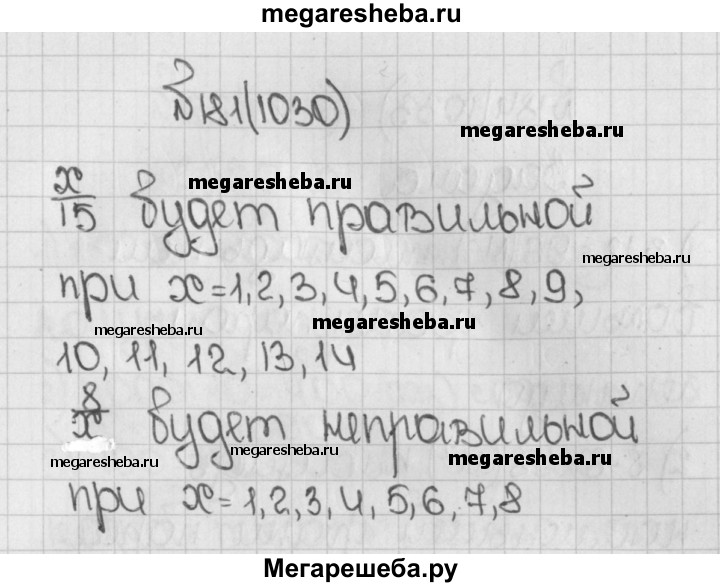 megaresheba.ru
№181(1030)
megaresheba.ru
x/15 будет правильной
megaresheba.ru
megaresheba.ru
при x=1,2,3,4,5,6,7,8,9,
megaresheba.ru
megaresheba.ru
megaresheba.ru
10, 11, 12, 13, 14
8/x будет неправильной
megaresheba.ru
megaresheba.ru
megaresheba.ru
при x=1,2,3,4,5,6,7,8
Мегарешеба.ру